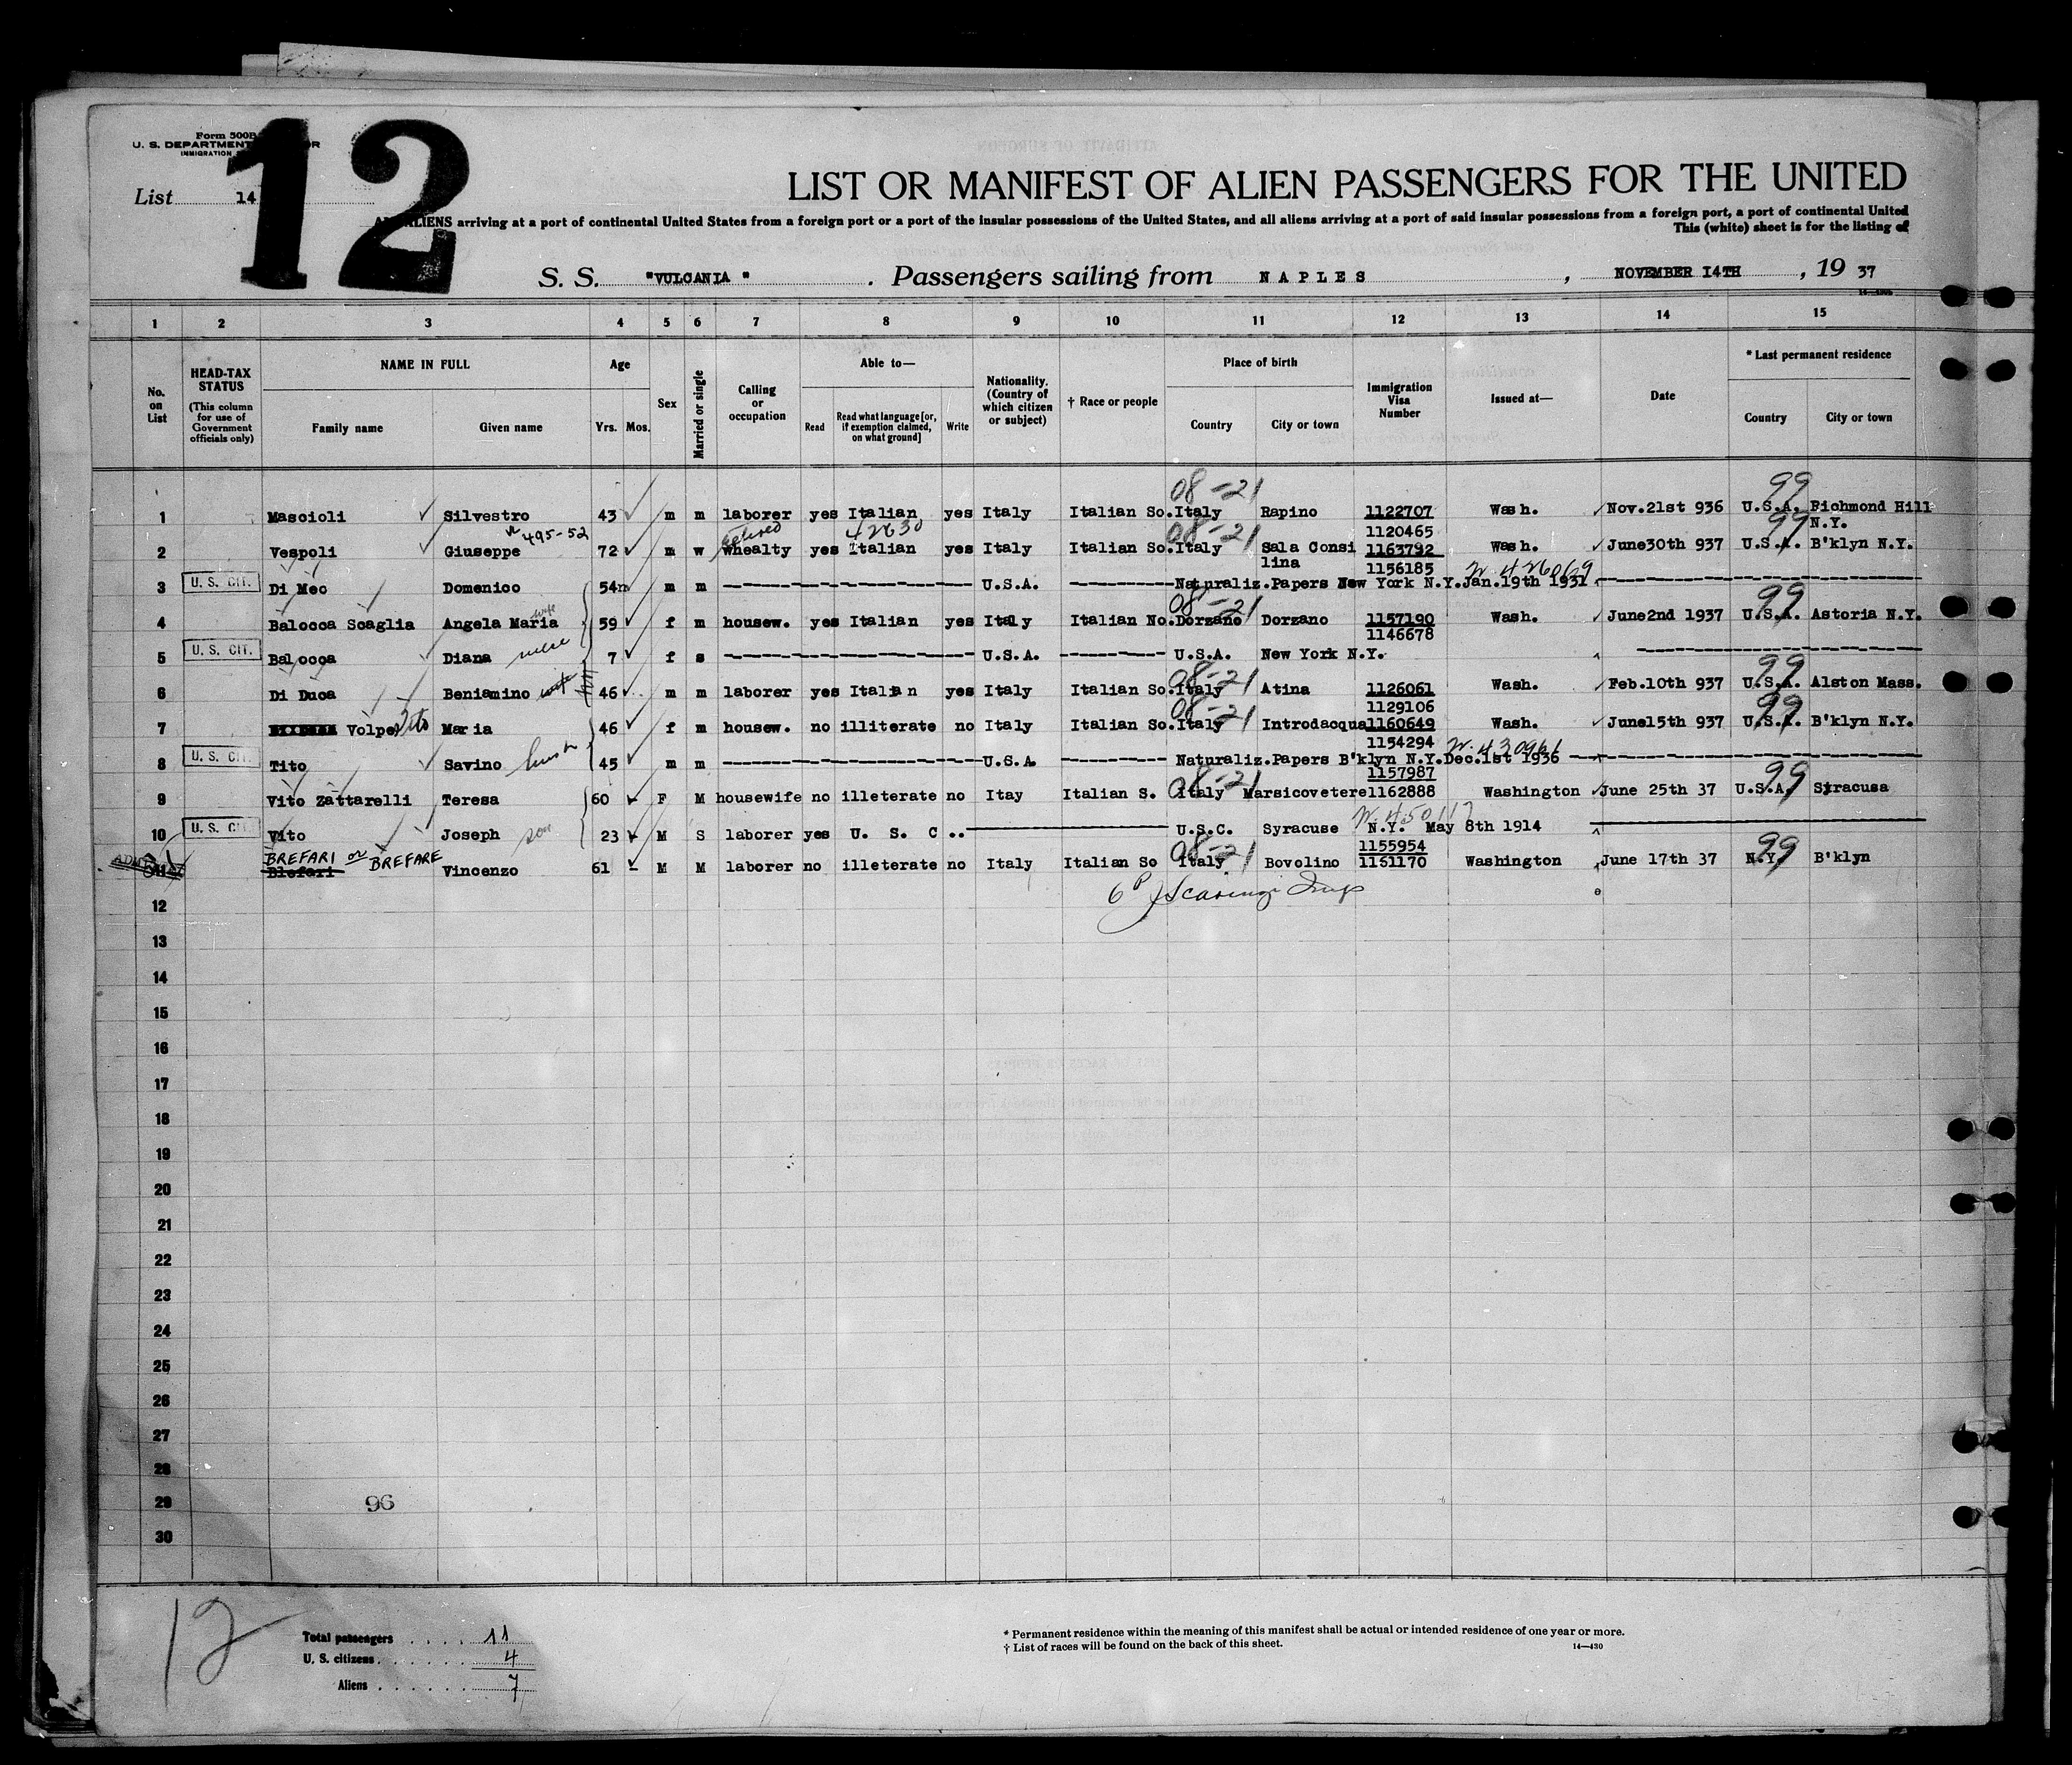 12
Form 500B
U. S. DEPARTMENT OR
IMMIGRATION
List 14
LIST OR MANIFEST OF ALIEN PASSENGERS FOR THE UNITED
ALIENS arriving at a port of continental United States from a foreign port or a port of the insular possessions of the United States, and all aliens arriving at a port of said insular possessions from a foreign port, a port of continental United
This (white) sheet is for the listing of
S. S. "VULCANIA" . Passengers sailing from NAPLES , NOVEMBER 14TH , 19 37
1 2 3 4 5 6 7 8 9 10 11 12 13 14 15
No. on List
HEAD-TAX STATUS (This column for use of Government officials only)
NAME IN FULL
Family name Given name
Age
Yrs. Mos.
Sex
Married or single
Calling or occupation
Able to—
Read Read what language [or, if exemption claimed, on what ground] Write
Nationality. (Country of which citizen or subject)
† Race or people
Place of birth
Country City or town
Immigration Visa Number
Issued at—
Date
* Last permanent residence
Country City or town
08-21 99
1 Mascioli Silvestro 43 m m laborer yes Italian yes Italy Italian So. Italy Rapino 1122707 Wash. Nov.21st 936 U.S.A. Richmond Hill
495-52 retired 42630 08-21 1120465 99 N.Y.
2 Vespoli Giuseppe 72 m w whealty yes Italian yes Italy Italian So. Italy Sala Consi 1163792 Wash. June30th 937 U.S.A. B'klyn N.Y.
lina 1156185
3 U. S. CIT. Di Meo Domenico 54 m m U.S.A. Naturaliz.Papers New York N.Y.Jan.19th 1931
wife 08-21 99
4 Balocca Scaglia Angela Maria 59 f m housew. yes Italian yes Italy Italian No. Dorzano Dorzano 1157190 Wash. June2nd 1937 U.S.A. Astoria N.Y.
1146678
5 U. S. CIT. Balocca Diana niece 7 f s U.S.A. U.S.A. New York N.Y.
08-21 99
6 Di Duca Beniamino wife 46 m m laborer yes Italian yes Italy Italian So. Italy Atina 1126061 Wash. Feb.10th 937 U.S.A. Alston Mass.
08-21 1129106 99
7 Volpe Tito Maria 46 f m housew. no illiterate no Italy Italian So. Italy Introdacqua 1160649 Wash. June15th 937 U.S.A. B'klyn N.Y.
1154294
8 U. S. CIT. Tito Savino 45 m m U.S.A. Naturaliz.Papers B'klyn N.Y.Dec.1st 1936
08-21 1157987 99
9 Vito Zattarelli Teresa 60 F M housewife no illeterate no Itay Italian S. Italy Marsicovetere 1162888 Washington June 25th 37 U.S.A. Syracusa
10 U. S. CIT. Vito Joseph son 23 M S laborer yes U. S. C .. U.S.C. Syracuse N.Y. May 8th 1914
BREFARI or BREFARE 08-21 1155954 99
Blefari Vincenzo 61 M M laborer no illeterate no Italy Italian So Italy Bovolino 1161170 Washington June 17th 37 N.Y. B'klyn
12
13
14
15
16
17
18
19
20
21
22
23
24
25
26
27
28
29 96
30
12
Total passengers . . . . 11
U. S. citizens . . . . . . 4
Aliens . . . . . . 7
* Permanent residence within the meaning of this manifest shall be actual or intended residence of one year or more.
† List of races will be found on the back of this sheet. 14—430